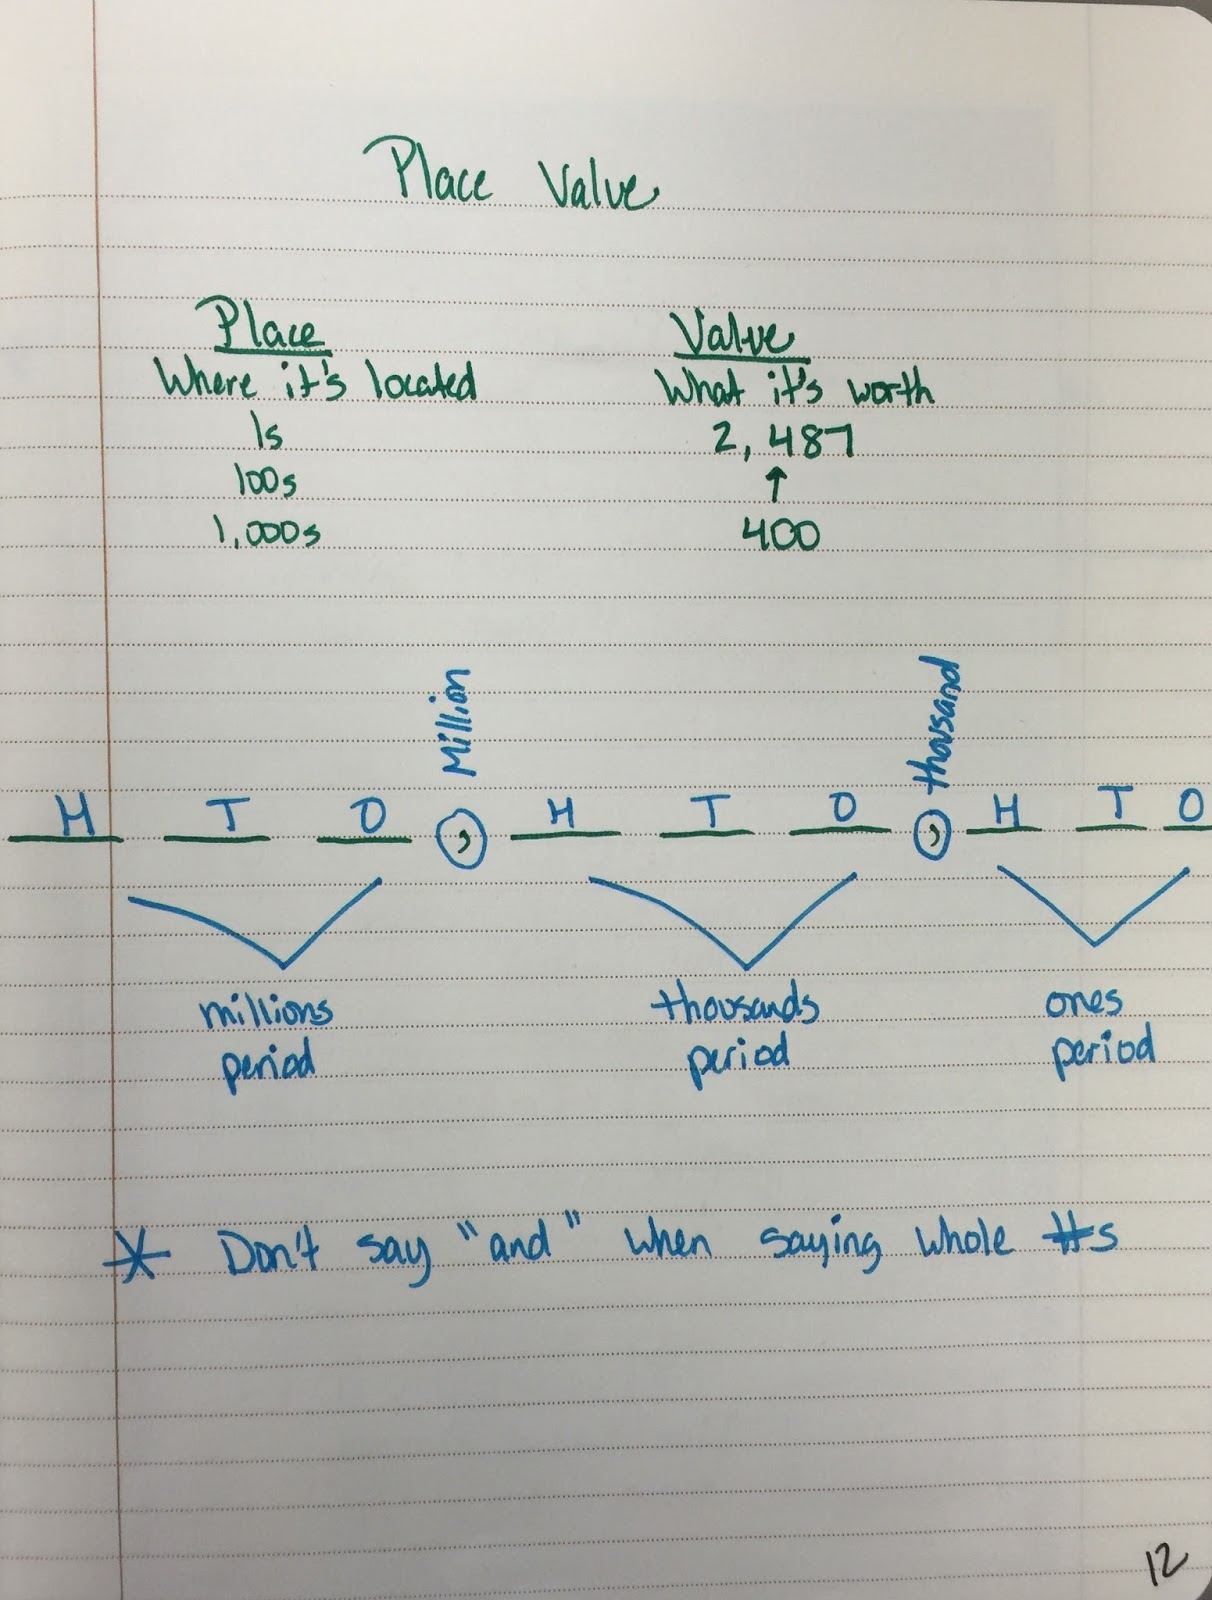 Place Value
Place
Where it's located
1s
100s
1,000s
Value
What it's worth
2,487
↑
400
Million
thousand
H T O , H T O , H T O
millions
period
thousands
period
ones
period
* Don't say "and" when saying whole #s
12